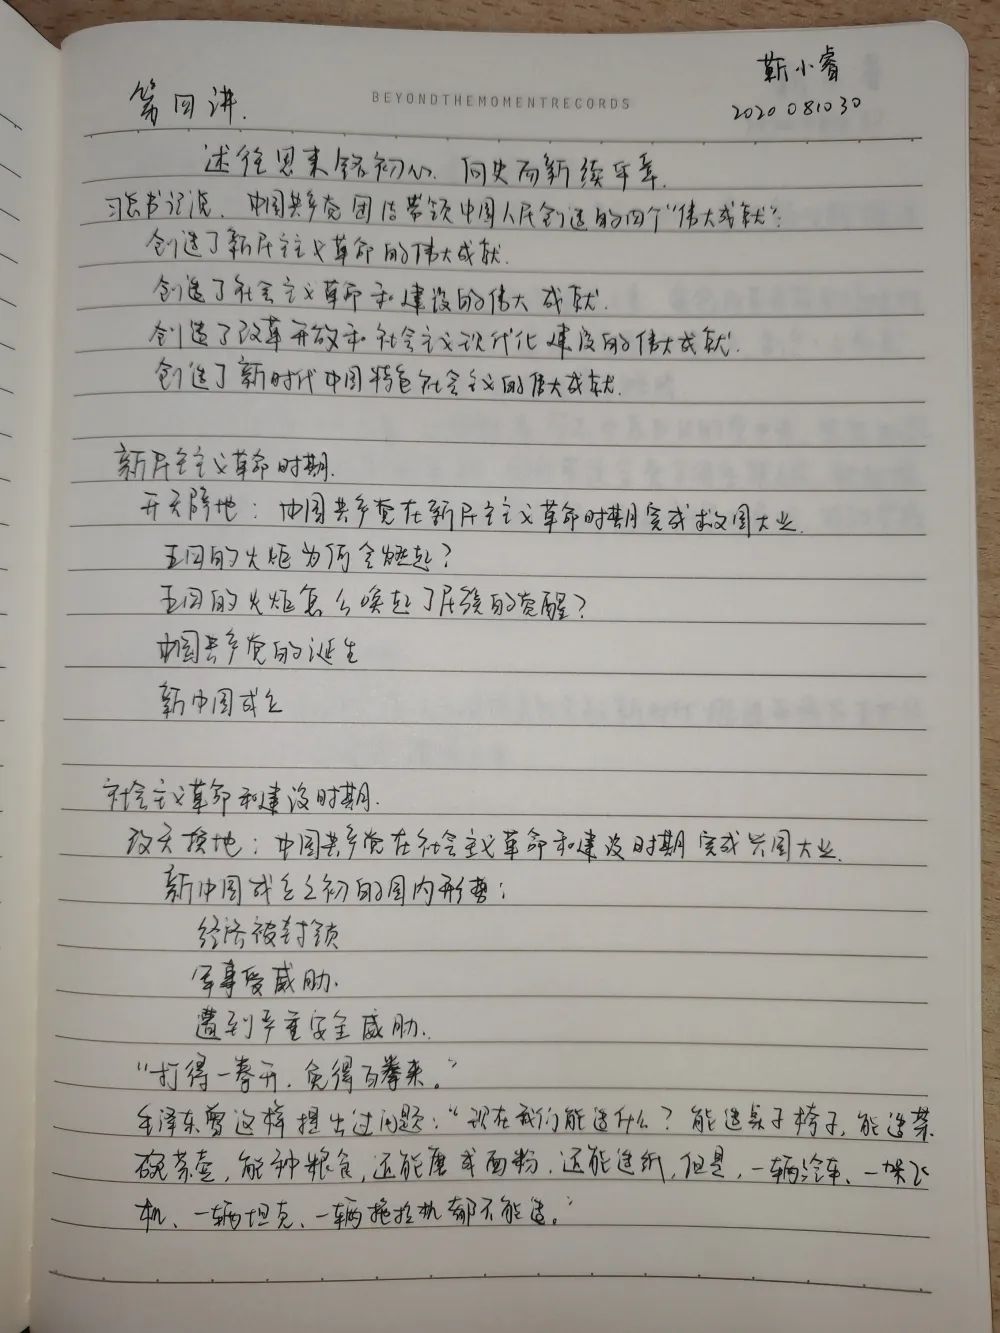 靳小睿
第四讲.
BEYONDTHEMOMENTRECORDS
2020081030
述往思来铭初心. 向史而新续华章.
习总书记说, 中国共产党团结带领中国人民创造的四个"伟大成就":
创造了新民主主义革命的伟大成就.
创造了社会主义革命和建设的伟大成就.
创造了改革开放和社会主义现代化建设的伟大成就.
创造了新时代中国特色社会主义的伟大成就.
新民主主义革命时期.
开天辟地: 中国共产党在新民主主义革命时期完成救国大业.
五四的火炬为何会燃起?
五四的火炬怎么唤起了民族的觉醒?
中国共产党的诞生
新中国成立
社会主义革命和建设时期.
改天换地: 中国共产党在社会主义革命和建设时期完成兴国大业.
新中国成立之初的国内形势:
经济被封锁
军事受威胁.
遭到严重安全威胁.
"打得一拳开, 免得百拳来。"
毛泽东曾这样提出过问题: "现在我们能造什么? 能造桌子椅子, 能造茶
碗茶壶, 能种粮食, 还能磨成面粉, 还能造纸, 但是, 一辆汽车、一架飞
机、一辆坦克、一辆拖拉机都不能造。"